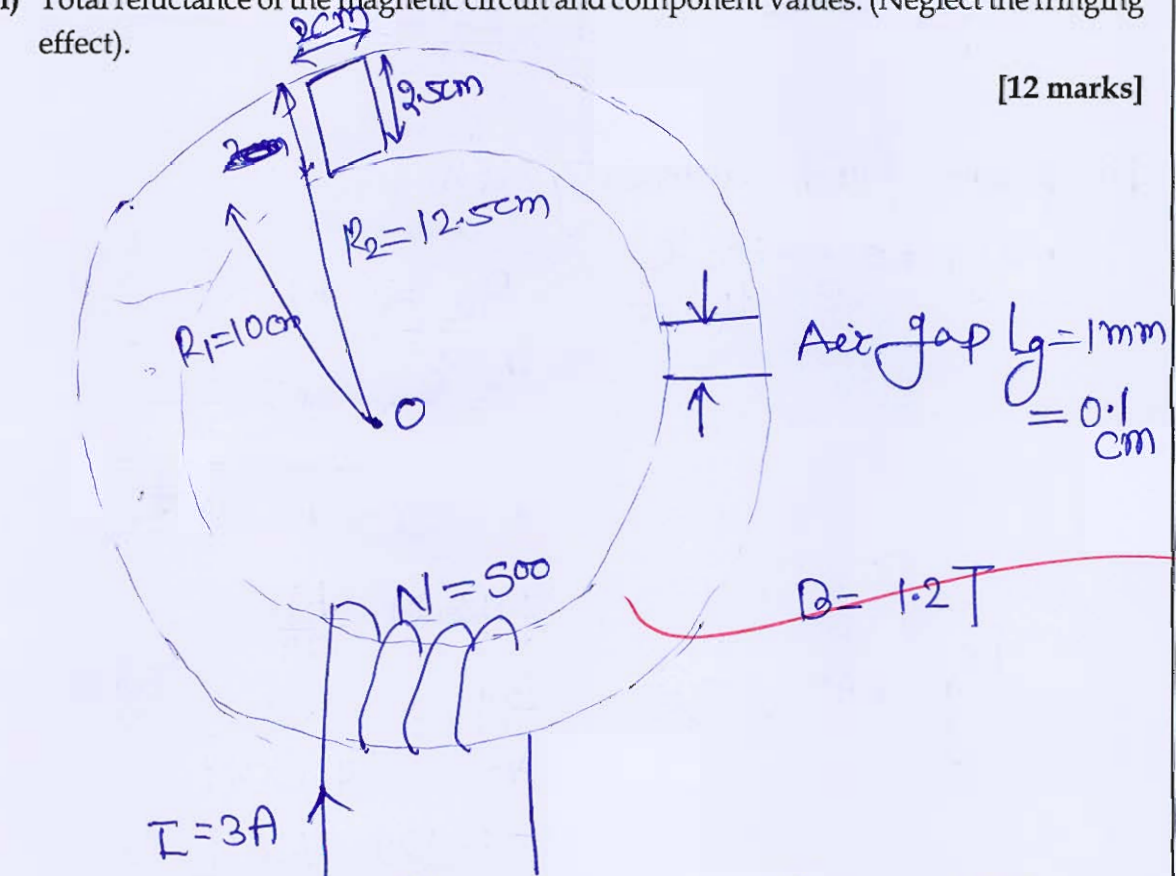 Total reluctance of the magnetic circuit and component values. (Neglect the fringing
effect).
[12 marks]
2cm
2.5cm
R2=12.5cm
R1=10cm
O
Air gap lg=1mm
= 0.1
cm
N=500
B= 1.2T
I=3A